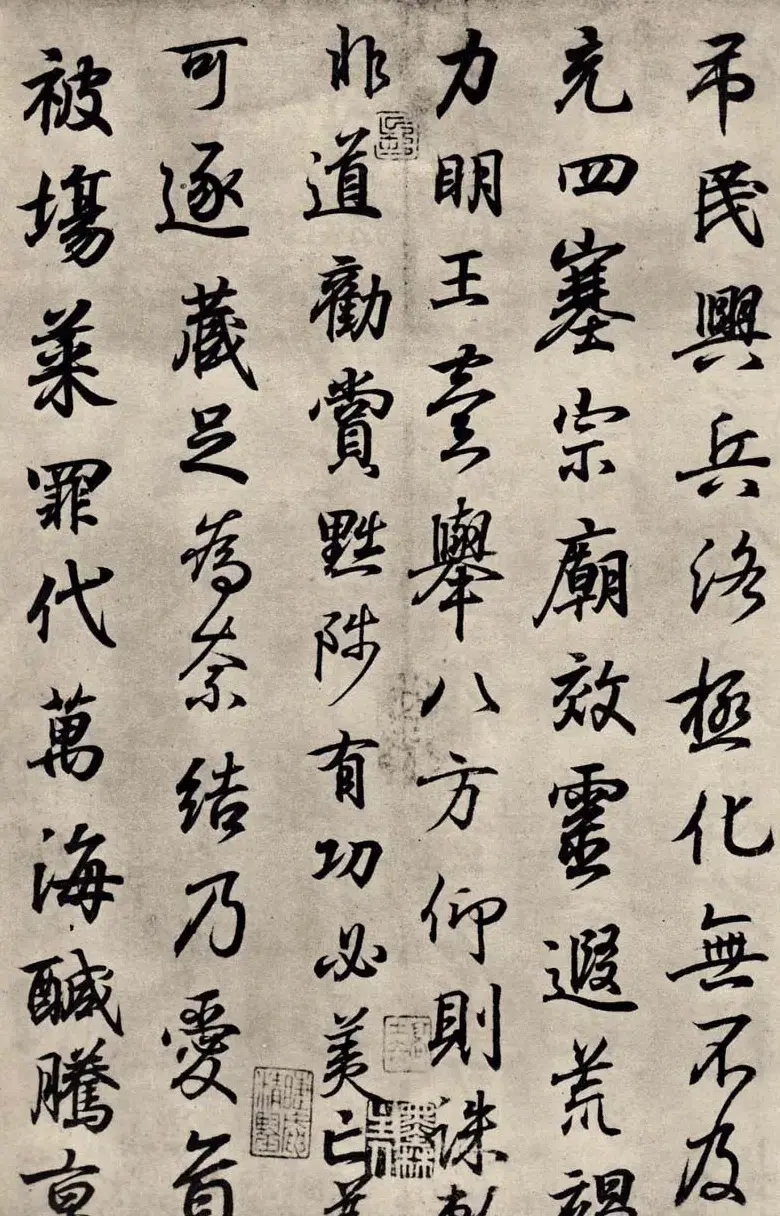 吊民興兵洛極化無不及
充四塞宗廟效靈遐荒
力明王舉八方仰則誅
非道勸賞黜陟有功必美亡
可逐藏足為奈結乃愛首
被塲菜罪代萬海鹹騰